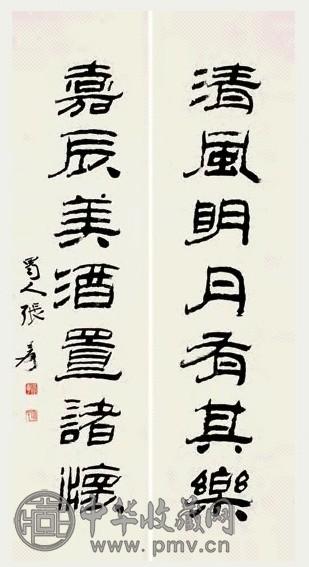 清風明月有其樂
嘉辰美酒置諸懷
蜀人張爰
中华收藏网
www.pmv.cn